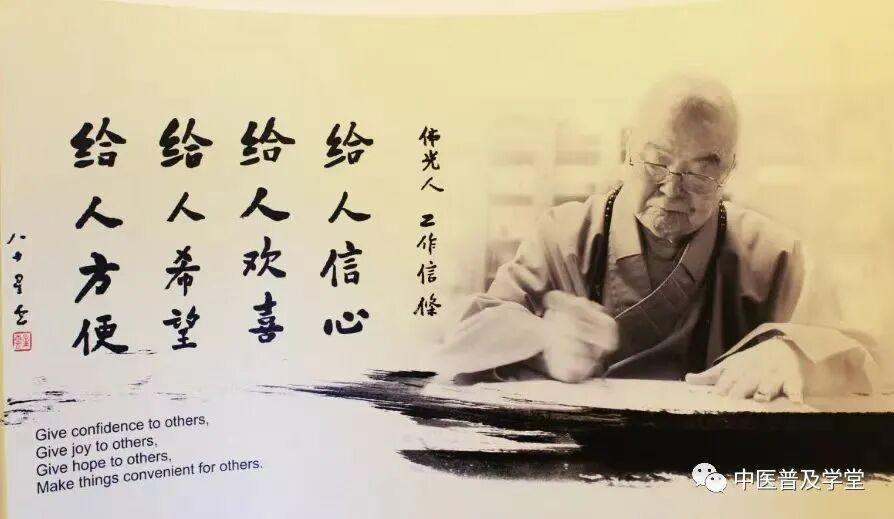 佛光人 工作信條
给人信心
给人欢喜
给人希望
给人方便
八十星云
Give confidence to others,
Give joy to others,
Give hope to others,
Make things convenient for others.
中医普及学堂